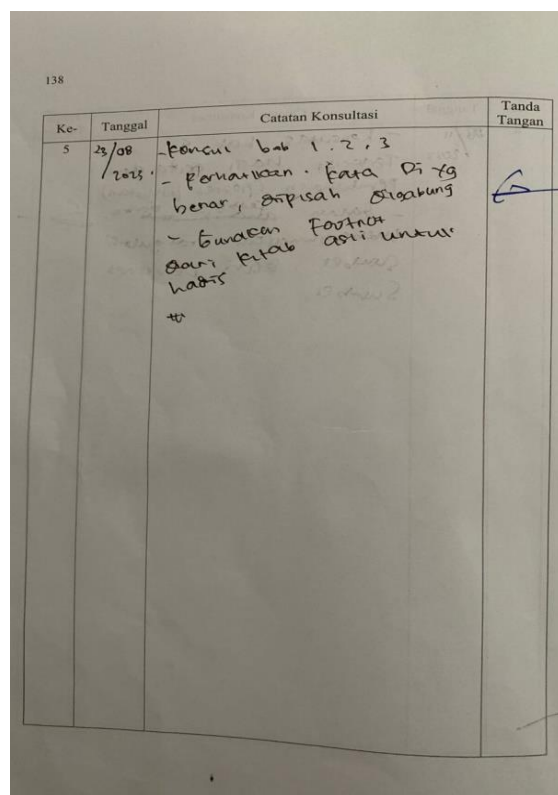 138
Ke- Tanggal Catatan Konsultasi Tanda Tangan
5 23/08 -Konsul bab 1.2,3
/2025. - Perhatikan. Kata Di yg
benar, dipisah digabung
- Gunakan Footnot
dari kitab asli untuk
hadis